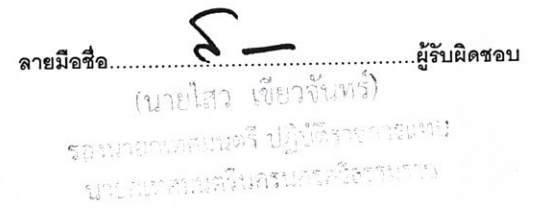 ลายมือชื่อ........................................................ผู้รับผิดชอบ
(นายไสว เขียวจันทร์)
รองนายกเทศมนตรี ปฏิบัติราชการแทน
นายกเทศมนตรีนครนครศรีธรรมราช